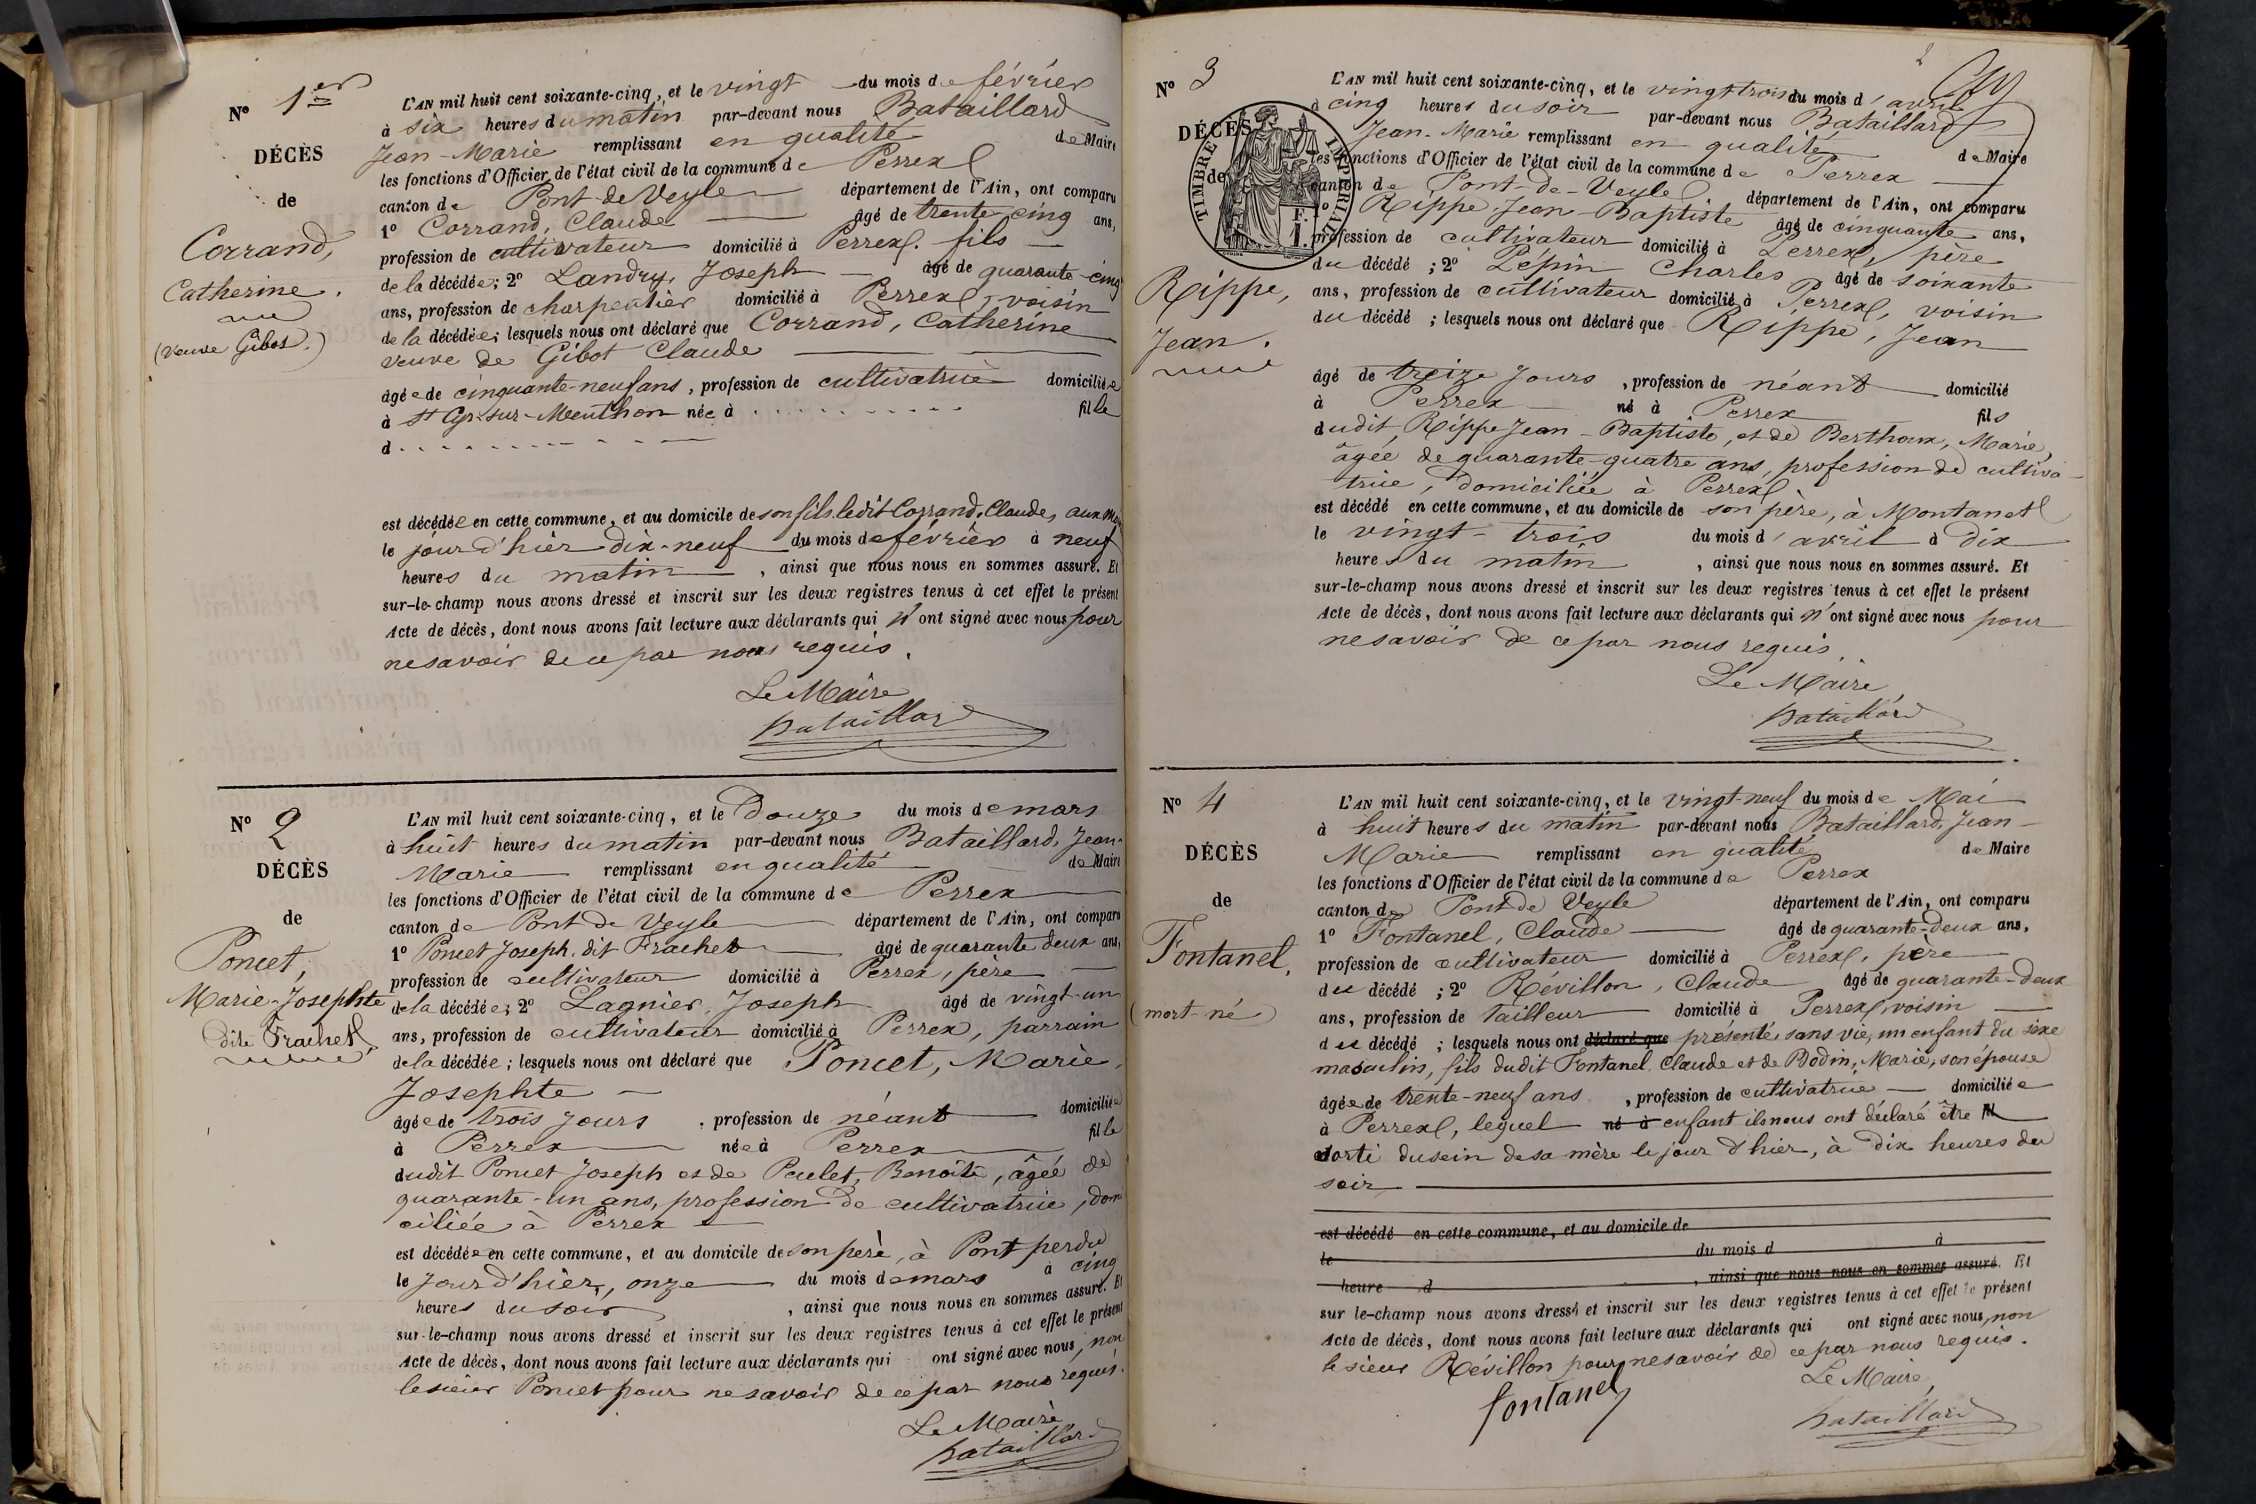 No 1er
DÉCÈS
de
Corrand,
Catherine.
(veuve Gibot.)
L'AN mil huit cent soixante-cinq, et le vingt du mois de février
à six heures du matin par-devant nous Bataillard
Jean-Marie remplissant en qualité de Maire
les fonctions d'Officier de l'état civil de la commune de Perrex
canton de Pont-de-Veyle département de l'Ain, ont comparu
1º Corrand, Claude âgé de trente cinq ans,
profession de cultivateur domicilié à Perrex, fils
de la décédée; 2º Landry, Joseph âgé de quarante-cinq
ans, profession de charpentier domicilié à Perrex, voisin
de la décédée; lesquels nous ont déclaré que Corrand, Catherine
veuve de Gibot Claude
âgée de cinquante-neuf ans, profession de cultivatrice domiciliée
à St Cyr-sur-Menthon née à . . . . . . . . . . fille
d . . . . . . . . . .
est décédée en cette commune, et au domicile de son fils ledit Corrand, Claude, aux
le jour d'hier dix-neuf du mois de février à neuf
heures du matin, ainsi que nous nous en sommes assuré. Et
sur-le-champ nous avons dressé et inscrit sur les deux registres tenus à cet effet le présent
Acte de décès, dont nous avons fait lecture aux déclarants qui n'ont signé avec nous pour
ne savoir de ce par nous requis.
Le Maire
Bataillard
No 2
DÉCÈS
de
Poncet,
Marie-Josephte
dite Frachet
L'AN mil huit cent soixante-cinq, et le Douze du mois de mars
à huit heures du matin par-devant nous Bataillard, Jean-
Marie remplissant en qualité de Maire
les fonctions d'Officier de l'état civil de la commune de Perrex
canton de Pont de Veyle département de l'Ain, ont comparu
1º Poncet Joseph, dit Frachet âgé de quarante deux ans,
profession de cultivateur domicilié à Perrex, père
de la décédée; 2º Lagnier, Joseph âgé de vingt-un
ans, profession de cultivateur domicilié à Perrex, parrain
de la décédée; lesquels nous ont déclaré que Poncet, Marie,
Josephte
âgée de trois jours, profession de néant domiciliée
à Perrex née à Perrex fille
dudit Poncet Joseph et de Peulet, Benoîte, âgée de
quarante-un ans, profession de cultivatrice, domi
ciliée à Perrex
est décédée en cette commune, et au domicile de son père, à Pont perdu
le jour d'hier, onze du mois de mars à cinq
heures du soir, ainsi que nous nous en sommes assuré. Et
sur-le-champ nous avons dressé et inscrit sur les deux registres tenus à cet effet le présent
Acte de décès, dont nous avons fait lecture aux déclarants qui ont signé avec nous, non
le sieur Poncet pour ne savoir de ce par nous requis.
Le Maire
Bataillard
2
No 3
DÉCÈS
de
TIMBRE IMPÉRIAL
Rippe,
Jean.
L'AN mil huit cent soixante-cinq, et le vingt-trois du mois d'avril
à cinq heures du soir par-devant nous Bataillard
Jean-Marie remplissant en qualité de Maire
les fonctions d'Officier de l'état civil de la commune de Perrex
canton de Pont-de-Veyle département de l'Ain, ont comparu
1º Rippe Jean-Baptiste âgé de cinquante ans,
profession de cultivateur domicilié à Perrex, père
du décédé; 2º Pépin Charles âgé de soixante
ans, profession de cultivateur domicilié à Perrex, voisin
du décédé; lesquels nous ont déclaré que Rippe, Jean
âgé de treize jours, profession de néant domicilié
à Perrex né à Perrex fils
dudit Rippe Jean-Baptiste, et de Berthoux, Marie,
âgée de quarante-quatre ans, profession de cultiva-
trice, domiciliée à Perrex
est décédé en cette commune, et au domicile de son père, à Montanet
le vingt-trois du mois d'avril à Dix
heures du matin, ainsi que nous nous en sommes assuré. Et
sur-le-champ nous avons dressé et inscrit sur les deux registres tenus à cet effet le présent
Acte de décès, dont nous avons fait lecture aux déclarants qui n'ont signé avec nous pour
ne savoir de ce par nous requis.
Le Maire,
Bataillard
No 4
DÉCÈS
de
Fontanel,
(mort-né)
L'AN mil huit cent soixante-cinq, et le vingt-neuf du mois de Mai
à huit heures du matin par-devant nous Bataillard, Jean-
Marie remplissant en qualité de Maire
les fonctions d'Officier de l'état civil de la commune de Perrex
canton de Pont de Veyle département de l'Ain, ont comparu
1º Fontanel, Claude âgé de quarante-deux ans,
profession de cultivateur domicilié à Perrex, père
du décédé; 2º Révillon, Claude âgé de quarante-deux
ans, profession de tailleur domicilié à Perrex, voisin
du décédé; lesquels nous ont déclaré que présenté, sans vie, un enfant du sexe
masculin, fils dudit Fontanel Claude et de Bodin, Marie, son épouse
âgée de trente-neuf ans, profession de cultivatrice domiciliée
à Perrex, lequel né à enfant ils nous ont déclaré être fil
sorti du sein de sa mère le jour d'hier, à dix heures du
soir
est décédé en cette commune, et au domicile de
le du mois d à
heure d, ainsi que nous nous en sommes assuré. Et
sur le-champ nous avons dressé et inscrit sur les deux registres tenus à cet effet le présent
Acte de décès, dont nous avons fait lecture aux déclarants qui ont signé avec nous, non
le sieur Révillon pour ne savoir de ce par nous requis.
Le Maire,
Fontanel
Bataillard